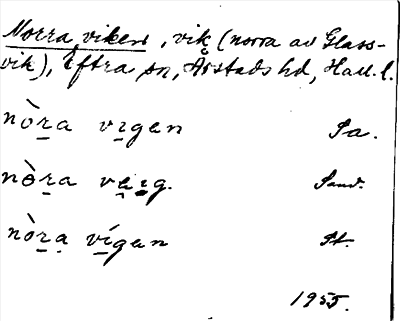 Norra viken, vik (norra av Glass-
vik), Eftra sn, Årstads hd, Hall. l.
nòra vigen Sa.
nòra veig. Sand.
nòra vígen St.
1955.